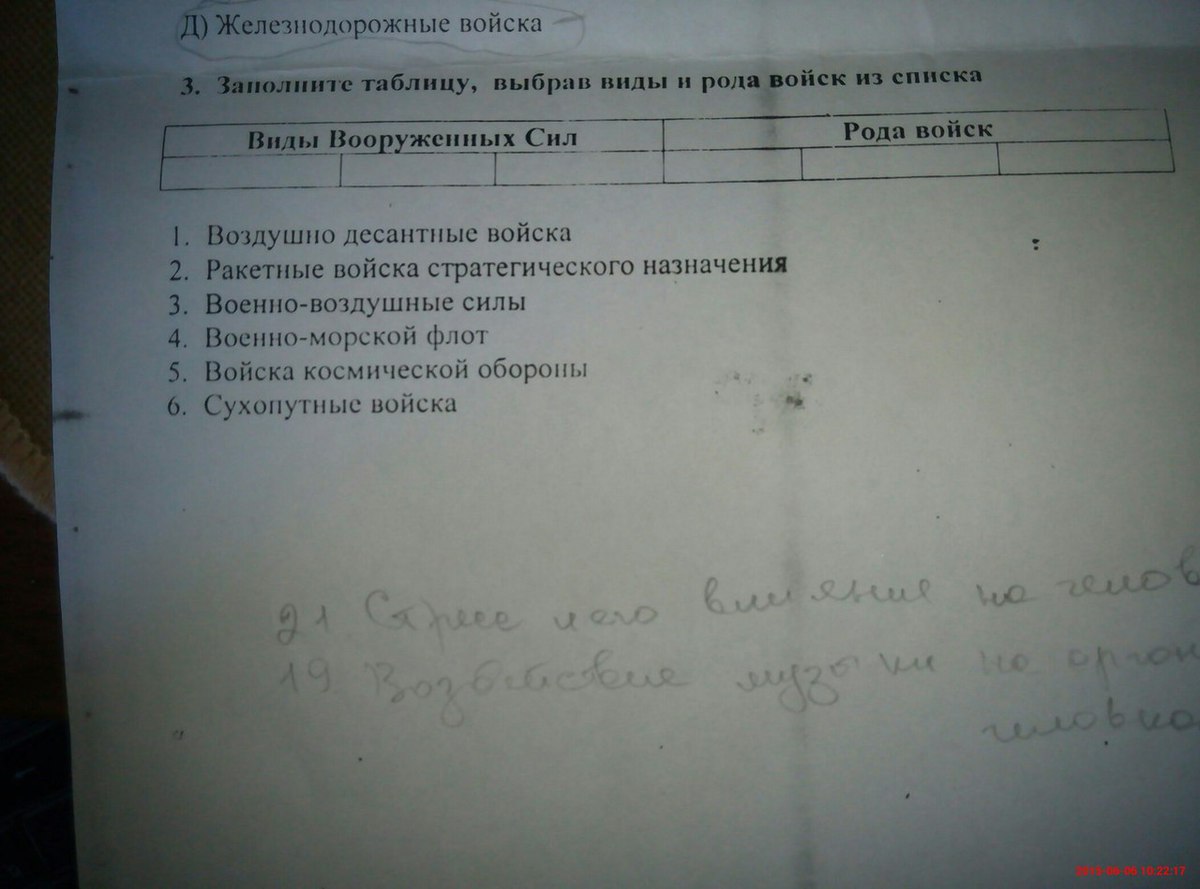 Д) Железнодорожные войска
3. Заполните таблицу, выбрав виды и рода войск из списка
Виды Вооруженных Сил Рода войск
1. Воздушно десантные войска
2. Ракетные войска стратегического назначения
3. Военно-воздушные силы
4. Военно-морской флот
5. Войска космической обороны
6. Сухопутные войска
21 Стресс и его влияние на челов
19 Воздействие музыки на орган
человка
2015-06-06 10:22:17